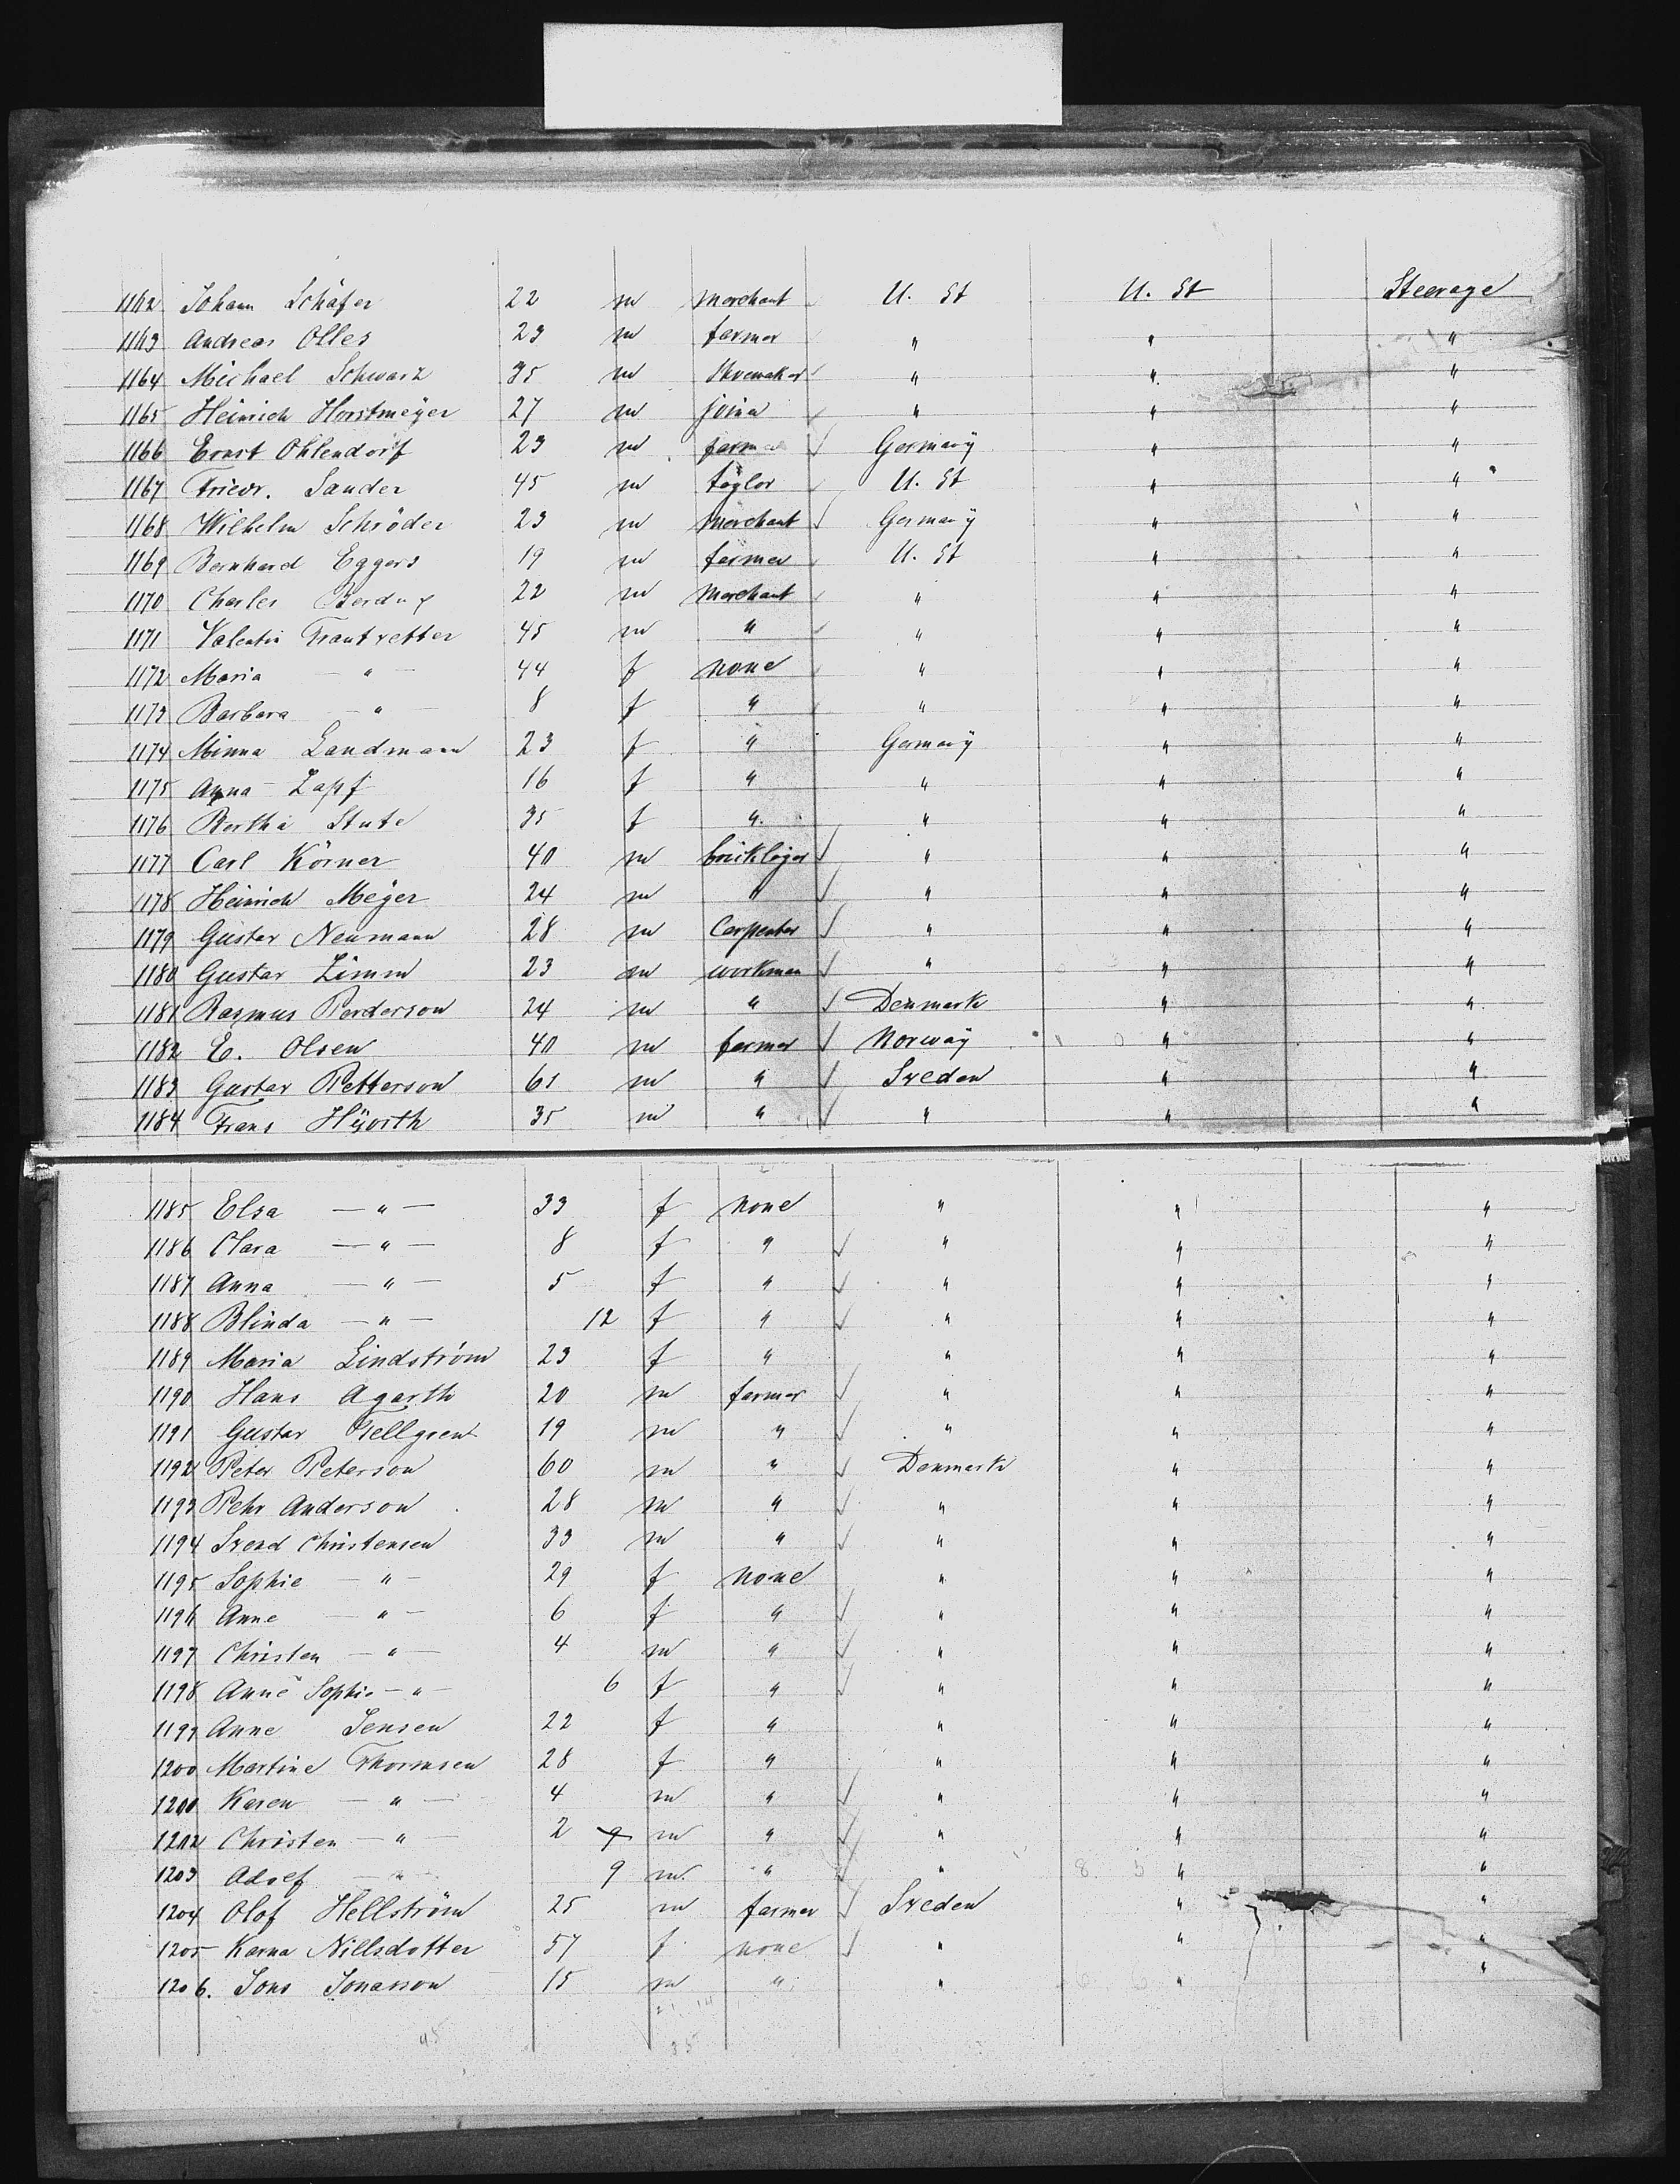 1162 Johann Schäfer 22 m merchant U. St U. St Steerage
1163 Andreas Olles 23 m farmer " " "
1164 Michael Schwarz 35 m Shoemaker " " "
1165 Heinrich Horstmeÿer 27 m joiner " " "
1166 Ernst Ohlendorf 23 m farmer Germanÿ " "
1167 Friedr. Sander 45 m taylor U. St " "
1168 Wilhelm Schröder 23 m merchant Germanÿ " "
1169 Bernhard Eggers 19 m farmer U. St " "
1170 Charles 22 m merchant " " "
1171 Valentin Trautvetter 45 m " " " "
1172 Maria — " — 44 f none " " "
1173 Barbara — " — 8 f " " " "
1174 Minna Landmann 23 f " Germanÿ " "
1175 Anna Zapf 16 f " " " "
1176 Bertha Stute 35 f " " " "
1177 Carl Körner 40 m bricklager " " "
1178 Heinrich Meÿer 24 m " " " "
1179 Gustav Neumann 28 m Carpenter " " "
1180 Gustav Zimm 23 m workman " " "
1181 Rasmus Perderson 24 m " Denmark " "
1182 E. Olsen 40 m farmer Norwaÿ " "
1183 Gustav Petterson 61 m " Sveden " "
1184 Frans Hÿorth 35 m " " " "
1185 Elsa — " — 33 f none " " "
1186 Clara — " — 8 f " " " "
1187 Anna — " — 5 f " " " "
1188 Blinda — " — 12 f " " " "
1189 Maria Lindström 23 f " " " "
1190 Hans Agarth 20 m farmer " " "
1191 Gustav 19 m " " " "
1192 Peter Peterson 60 m " Denmark " "
1193 Pehr Anderson 28 m " " " "
1194 Svend Christensen 33 m " " " "
1195 Sophie — " — 29 f none " " "
1196 Anne — " — 6 f " " " "
1197 Christen — " — 4 m " " " "
1198 Anne Sophie — " — 6 f " " " "
1199 Anne Jensen 22 f " " " "
1200 Martine Thormsen 28 f " " " "
1201 Karen — " — 4 m " " " "
1202 Christen — " — 2 9 m " " " "
1203 Adolf — " — 9 m. " " " "
1204 Olof Hellström 25 m farmer Sveden " "
1205 Karna Nillsdotter 57 f none " " "
1206. Jons Jonasson 15 m " " " "
21 14
45 35